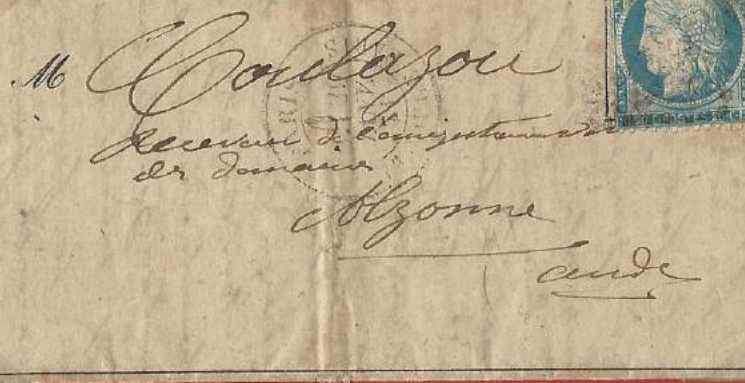 M Coulazou
Receveur de l'enregistrement
des domaines
Alzonne
aude